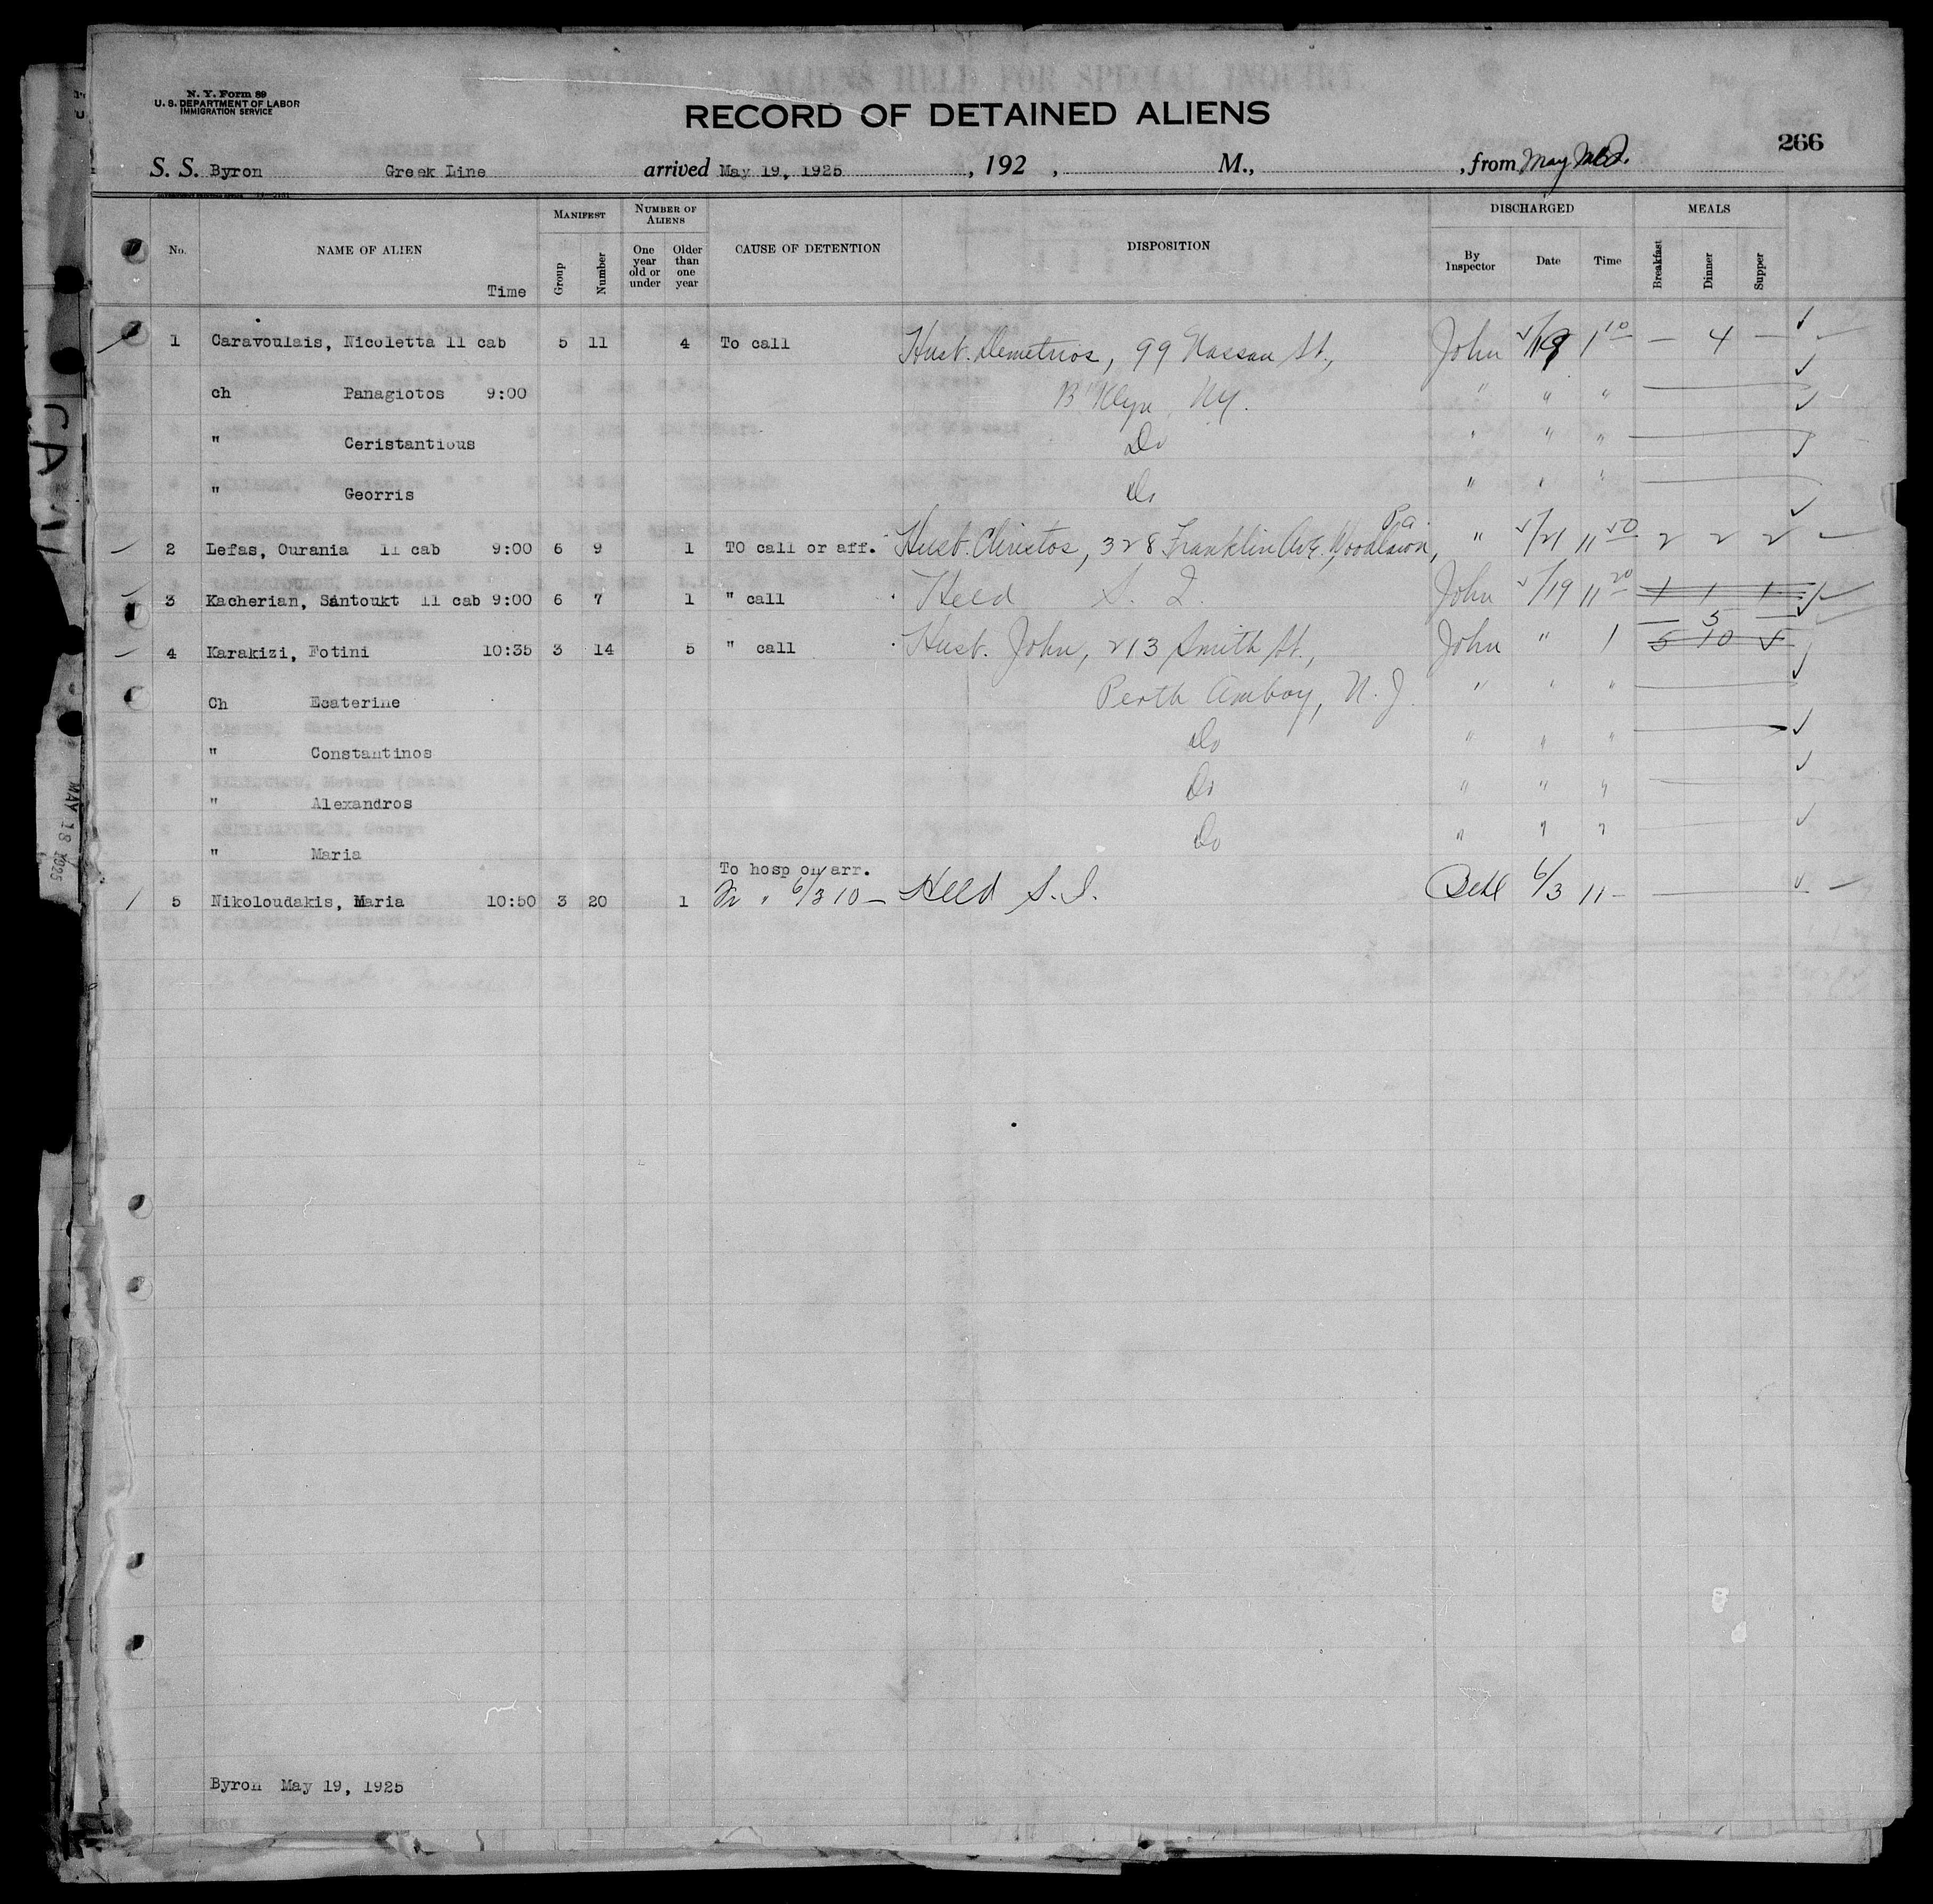 N. Y. Form 89
U. S. DEPARTMENT OF LABOR
IMMIGRATION SERVICE
RECORD OF DETAINED ALIENS
266
S. S. Byron Greek Line arrived May 19, 1925, 192 , M., , from May
MANIFEST NUMBER OF ALIENS DISCHARGED MEALS
No. NAME OF ALIEN Time Group Number One year old or under Older than one year CAUSE OF DETENTION DISPOSITION By Inspector Date Time Breakfast Dinner Supper
1 Caravoulais, Nicoletta 11 cab 5 11 4 To call Husb. Demetrios, 99 Nassau St., John 5/19 1 10 — 4 —
ch Panagiotos 9:00 B'klyn, NY. " " "
" Ceristantious Do " " "
" Georris Do " " "
2 Lefas, Ourania 11 cab 9:00 6 9 1 TO call or aff. Husb. Christos, 328 Franklin Ave., Woodlawn, Pa. " 5/21 11 50 2 2 2
3 Kacherian, Santoukt 11 cab 9:00 6 7 1 " call Held S. I. John 5/19 11 20 1 1 1
— 5 —
4 Karakizi, Fotini 10:35 3 14 5 " call Husb. John, 213 Smith St., John " 1 5 10 5
Ch Ecaterine Perth Amboy, N. J. " " "
" Constantinos Do " " "
" Alexandros Do " " "
" Maria Do " " "
To hosp on arr.
5 Nikoloudakis, Maria 10:50 3 20 1 Fr " 6/3 10 — Held S. I. Bell 6/3 11 —
Byron May 19, 1925
MAY 18 1925